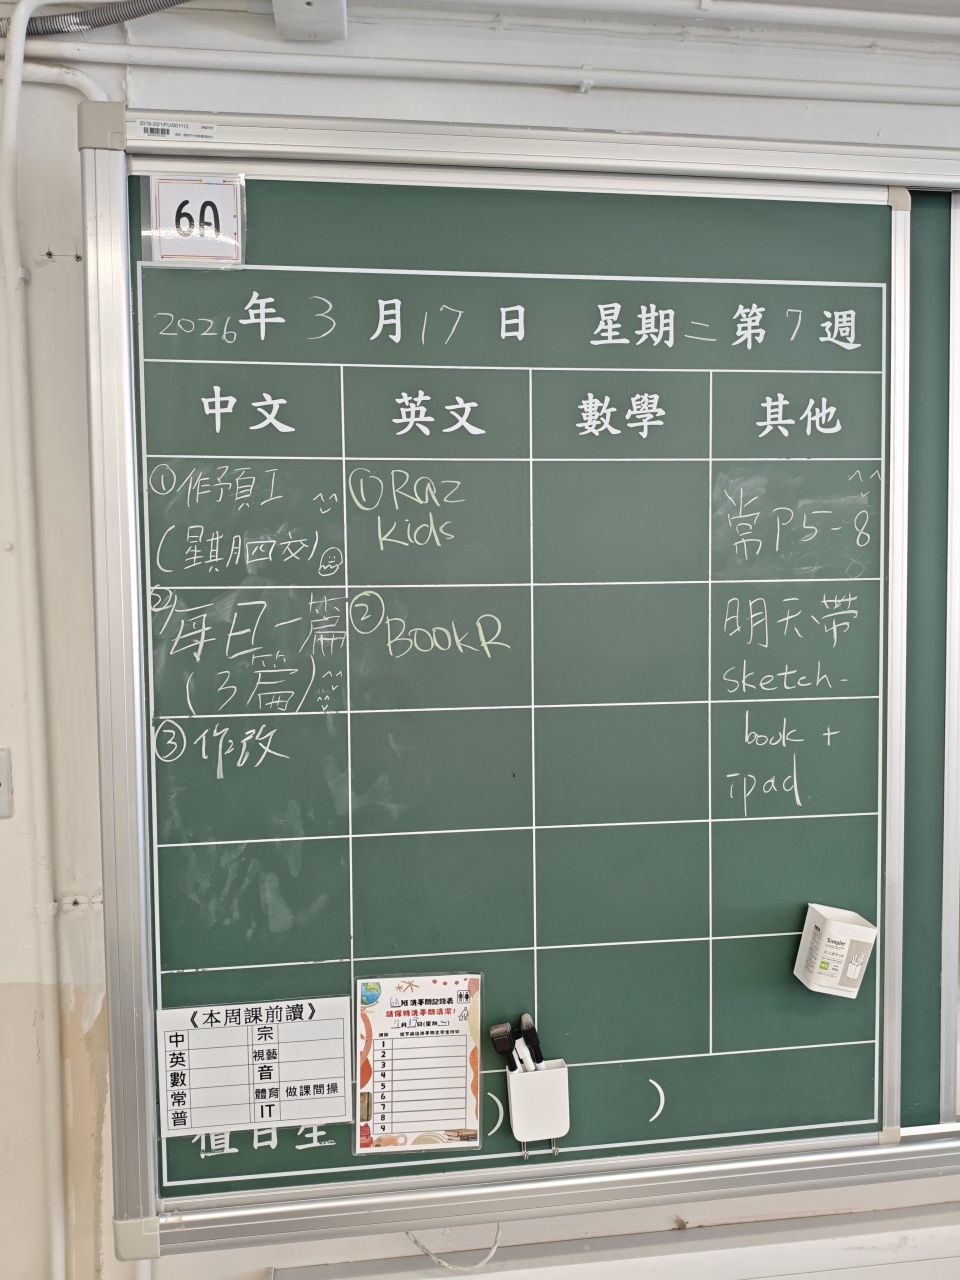 6A
2026年3月17日 星期二第7週
中文 英文 數學 其他
①作預工
(星期四交)
②每日一篇
(3篇)
③作改
①Raz
kids
②BookR
常P5-8
明天帶
sketch-
book +
ipad
《本周課前讀》
中 宗
英 視藝
數 音
常 體育 做課間操
普 IT
班洗手間記錄表
請保持洗手間清潔!
1
2
3
4
5
6
7
8
9
Simpler
值日生
)
)
2019-20/1/FU/001112